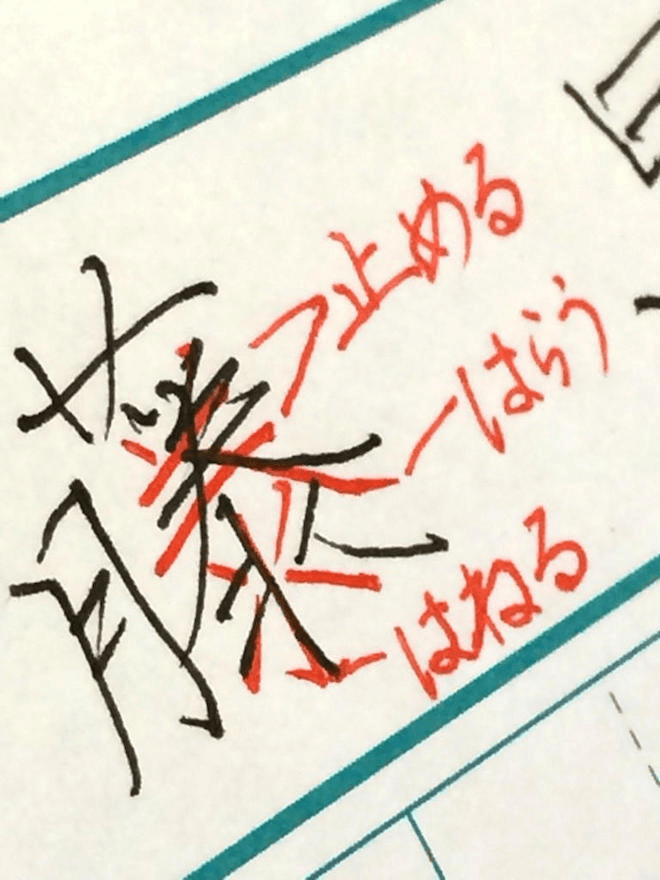 藤
止める
はらう
はねる